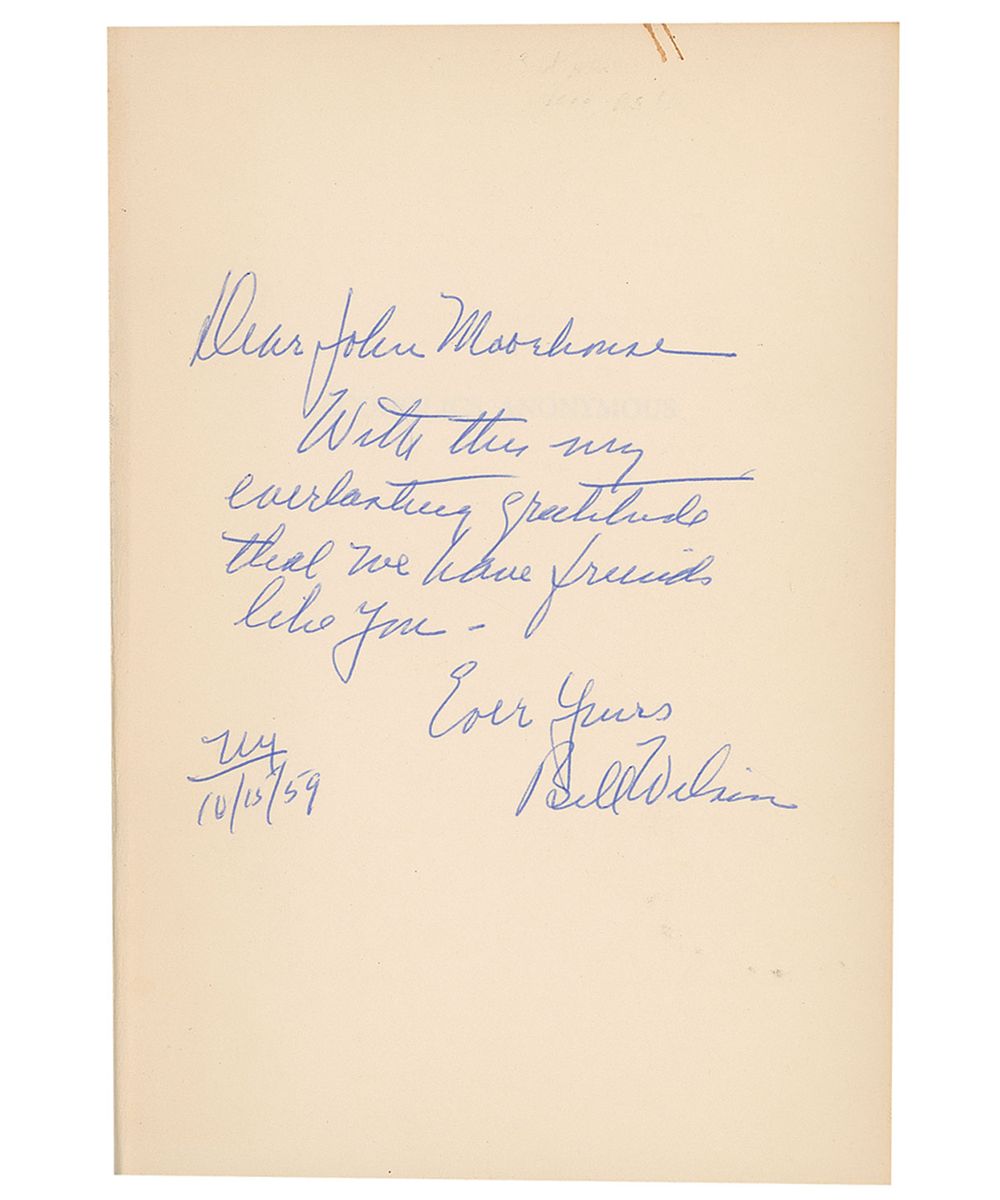 Dear John Moorhouse
With this my
everlasting gratitude
that we have friends
like you -
Ever Yours
Bill Wilson
NY
10/15/59
ANONYMOUS